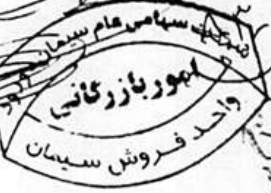 شرکت سهامی عام سیمان
امور بازرگانی
واحد فروش سیمان